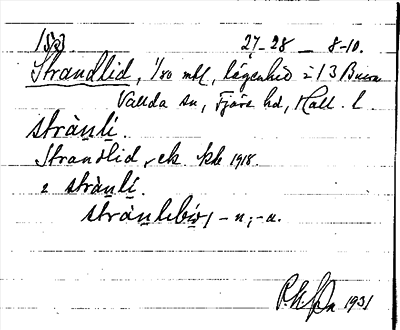 153 27-28 – 8-10.
Strandlid, 1/80 mtl, lägenhet å 13 Buera
Vallda sn, Fjäre hd, Hall. l.
strànlí.
Strandlid, ek. kbl 1918.
2 strànlí.
strànlibo, -n, -a.
1931